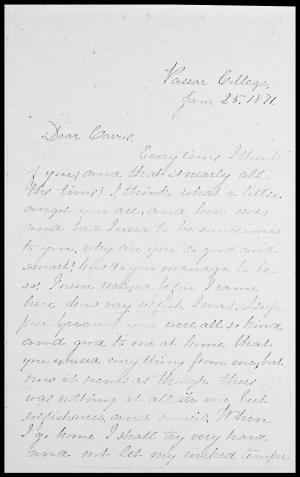 Vassar College,
Jan. 25, 1871.
Dear Carrie.
Every time I think
of you (and that is nearly all
the time) I think what a little
angel you are, and how cross
and bad I used to be sometimes
to you. Why are you so good and
smart? How do you manage to be
so? I never realized before I came
here how very selfish I was. I sup
pose because you were all so kind
and good to me at home that
you excused everything from me, but
now it seems as though there
was nothing at all in me but
selfishness, and . When
I go home I shall try very hard
and not let my wicked temper